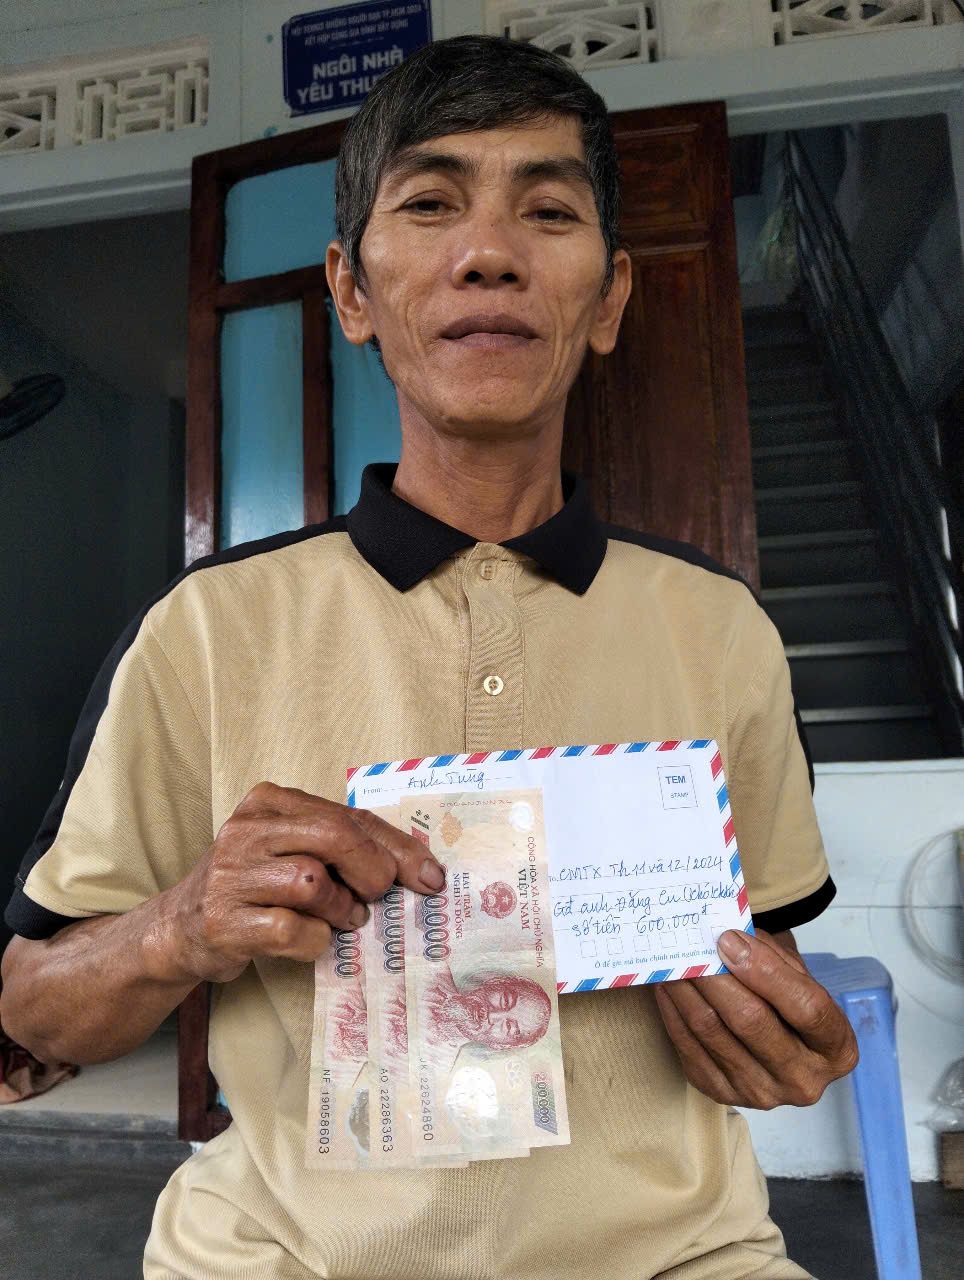 HỘI DOANH NHÂN NGƯỜI ĐẠO TP.HCM 2024
KẾT HỢP CÙNG GIA ĐÌNH XÂY DỰNG
NGÔI NHÀ
YÊU THƯ
From: Anh Tùng
TEM
STAMP
To: CMTX Th 11 và 12/2024
Gđ anh Đặng Cu
số tiền 600.000đ
Ô để ghi mã bưu chính nơi người nhận
CỘNG HÒA XÃ HỘI CHỦ NGHĨA
VIỆT NAM
HAI TRĂM
NGHÌN ĐỒNG
200000
JK 22624860
AO 22286363
NF 19058603